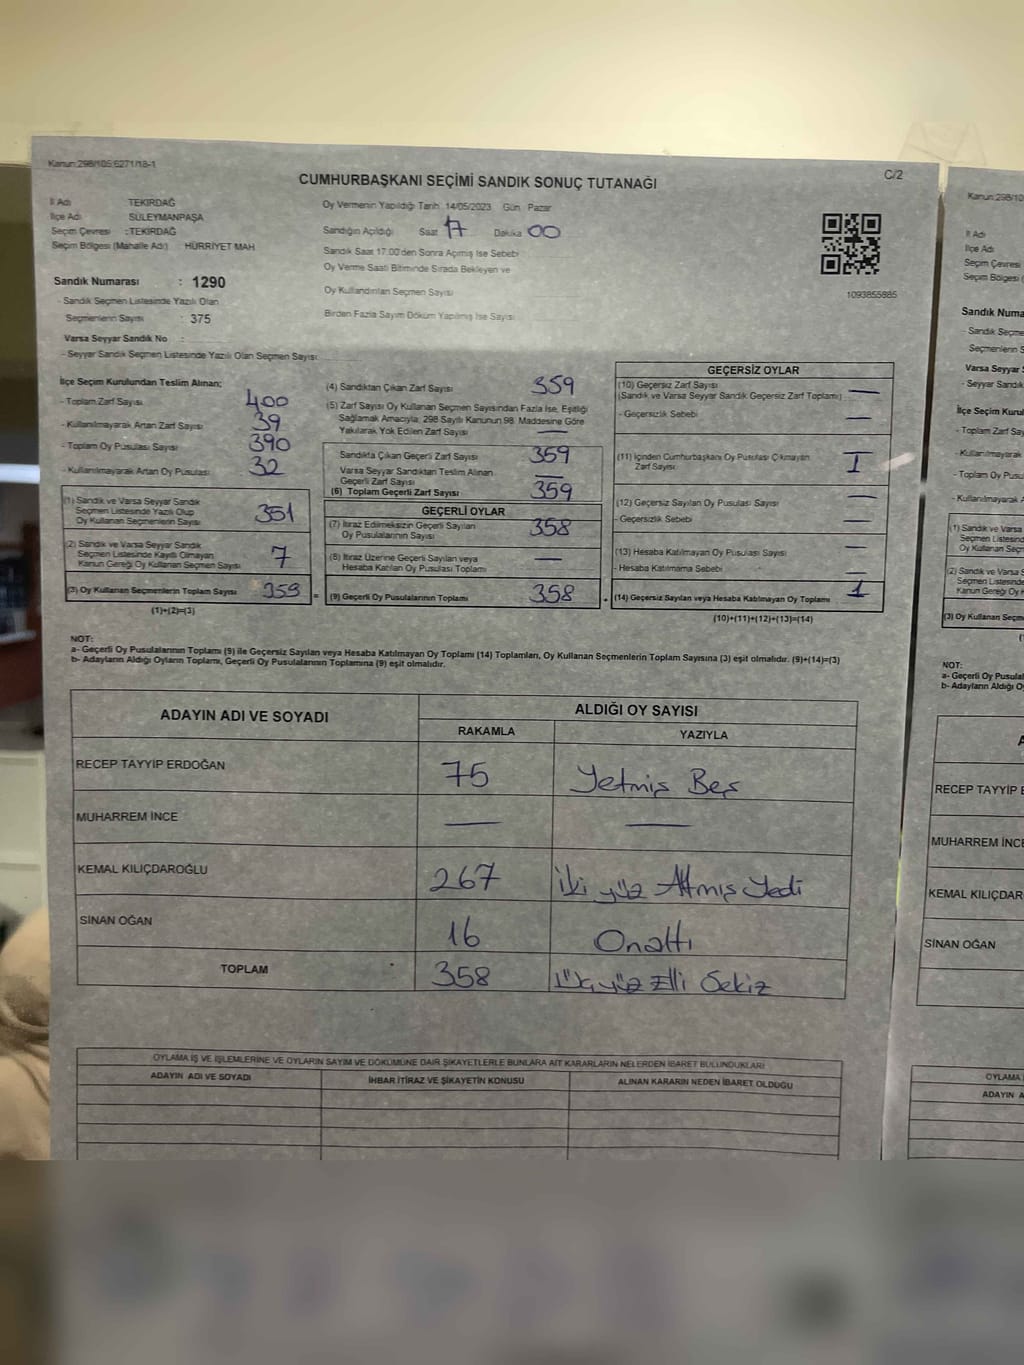 Kanun:298/105;6271/18-1
C/2
CUMHURBAŞKANI SEÇİMİ SANDIK SONUÇ TUTANAĞI
İl Adı TEKİRDAĞ
İlçe Adı SÜLEYMANPAŞA
Seçim Çevresi : TEKİRDAĞ
Seçim Bölgesi (Mahalle Adı) HÜRRİYET MAH
Sandık Numarası : 1290
- Sandık Seçmen Listesinde Yazılı Olan
Seçmenlerin Sayısı : 375
Varsa Seyyar Sandık No :
- Seyyar Sandık Seçmen Listesinde Yazılı Olan Seçmen Sayısı:
Oy Vermenin Yapıldığı Tarih 14/05/2023 Gün Pazar
Sandığın Açıldığı Saat 17 Dakika 00
Sandık Saat 17.00'den Sonra Açılmış İse Sebebi
Oy Verme Saati Bitiminde Sırada Bekleyen ve
Oy Kullandırılan Seçmen Sayısı
Birden Fazla Sayım Döküm Yapılmış İse Sayısı
1093855885
İlçe Seçim Kurulundan Teslim Alınan;
- Toplam Zarf Sayısı 400
- Kullanılmayarak Artan Zarf Sayısı 39
- Toplam Oy Pusulası Sayısı 390
- Kullanılmayarak Artan Oy Pusulası 32
(1) Sandık ve Varsa Seyyar Sandık
Seçmen Listesinde Yazılı Olup
Oy Kullanan Seçmenlerin Sayısı 351
(2) Sandık ve Varsa Seyyar Sandık
Seçmen Listesinde Kayıtlı Olmayan
Kanun Gereği Oy Kullanan Seçmen Sayısı 7
(3) Oy Kullanan Seçmenlerin Toplam Sayısı 359 =
(1)+(2)=(3)
(4) Sandıktan Çıkan Zarf Sayısı 359
(5) Zarf Sayısı Oy Kullanan Seçmen Sayısından Fazla İse, Eşitliği
Sağlamak Amacıyla, 298 Sayılı Kanunun 98. Maddesine Göre
Yakılarak Yok Edilen Zarf Sayısı —
Sandıkta Çıkan Geçerli Zarf Sayısı 359
Varsa Seyyar Sandıktan Teslim Alınan
Geçerli Zarf Sayısı —
(6) Toplam Geçerli Zarf Sayısı 359
GEÇERLİ OYLAR
(7) İtiraz Edilmeksizin Geçerli Sayılan
Oy Pusulalarının Sayısı 358
(8) İtiraz Üzerine Geçerli Sayılan veya
Hesaba Katılan Oy Pusulası Toplamı —
(9) Geçerli Oy Pusulalarının Toplamı 358 +
GEÇERSİZ OYLAR
(10) Geçersiz Zarf Sayısı
(Sandık ve Varsa Seyyar Sandık Geçersiz Zarf Toplamı) —
- Geçersizlik Sebebi —
(11) İçinden Cumhurbaşkanı Oy Pusulası Çıkmayan
Zarf Sayısı 1
(12) Geçersiz Sayılan Oy Pusulası Sayısı —
- Geçersizlik Sebebi —
(13) Hesaba Katılmayan Oy Pusulası Sayısı —
- Hesaba Katılmama Sebebi —
(14) Geçersiz Sayılan veya Hesaba Katılmayan Oy Toplamı 1
(10)+(11)+(12)+(13)=(14)
NOT:
a- Geçerli Oy Pusulalarının Toplamı (9) ile Geçersiz Sayılan veya Hesaba Katılmayan Oy Toplamı (14) Toplamları, Oy Kullanan Seçmenlerin Toplam Sayısına (3) eşit olmalıdır. (9)+(14)=(3)
b- Adayların Aldığı Oyların Toplamı, Geçerli Oy Pusulalarının Toplamına (9) eşit olmalıdır.
ADAYIN ADI VE SOYADI ALDIĞI OY SAYISI
RAKAMLA YAZIYLA
RECEP TAYYİP ERDOĞAN 75 Yetmiş Beş
MUHARREM İNCE — —
KEMAL KILIÇDAROĞLU 267 İki yüz Altmış Yedi
SİNAN OĞAN 16 Onaltı
TOPLAM 358 Üçyüz Elli Sekiz
OYLAMA İŞ VE İŞLEMLERİNE VE OYLARIN SAYIM VE DÖKÜMÜNE DAİR ŞİKAYETLERLE BUNLARA AİT KARARLARIN NELERDEN İBARET BULUNDUKLARI
ADAYIN ADI VE SOYADI İHBAR İTİRAZ VE ŞİKAYETİN KONUSU ALINAN KARARIN NEDEN İBARET OLDUĞU
Kanun:298/10
İl Adı
İlçe Adı
Seçim Çevresi
Seçim Bölgesi
Sandık Numa
- Sandık Seçme
Seçmenlerin S
Varsa Seyyar S
- Seyyar Sandık
İlçe Seçim Kurul
- Toplam Zarf Say
- Kullanılmayarak
- Toplam Oy Pusul
- Kullanılmayarak A
(1) Sandık ve Varsa
Seçmen Listesind
Oy Kullanan Seçm
(2) Sandık ve Varsa S
Seçmen Listesinde
Kanun Gereği Oy K
(3) Oy Kullanan Seçm
NOT:
a- Geçerli Oy Pusulal
b- Adayların Aldığı Oy
RECEP TAYYİP E
MUHARREM İNCE
KEMAL KILIÇDAR
SİNAN OĞAN
OYLAMA
ADAYIN A